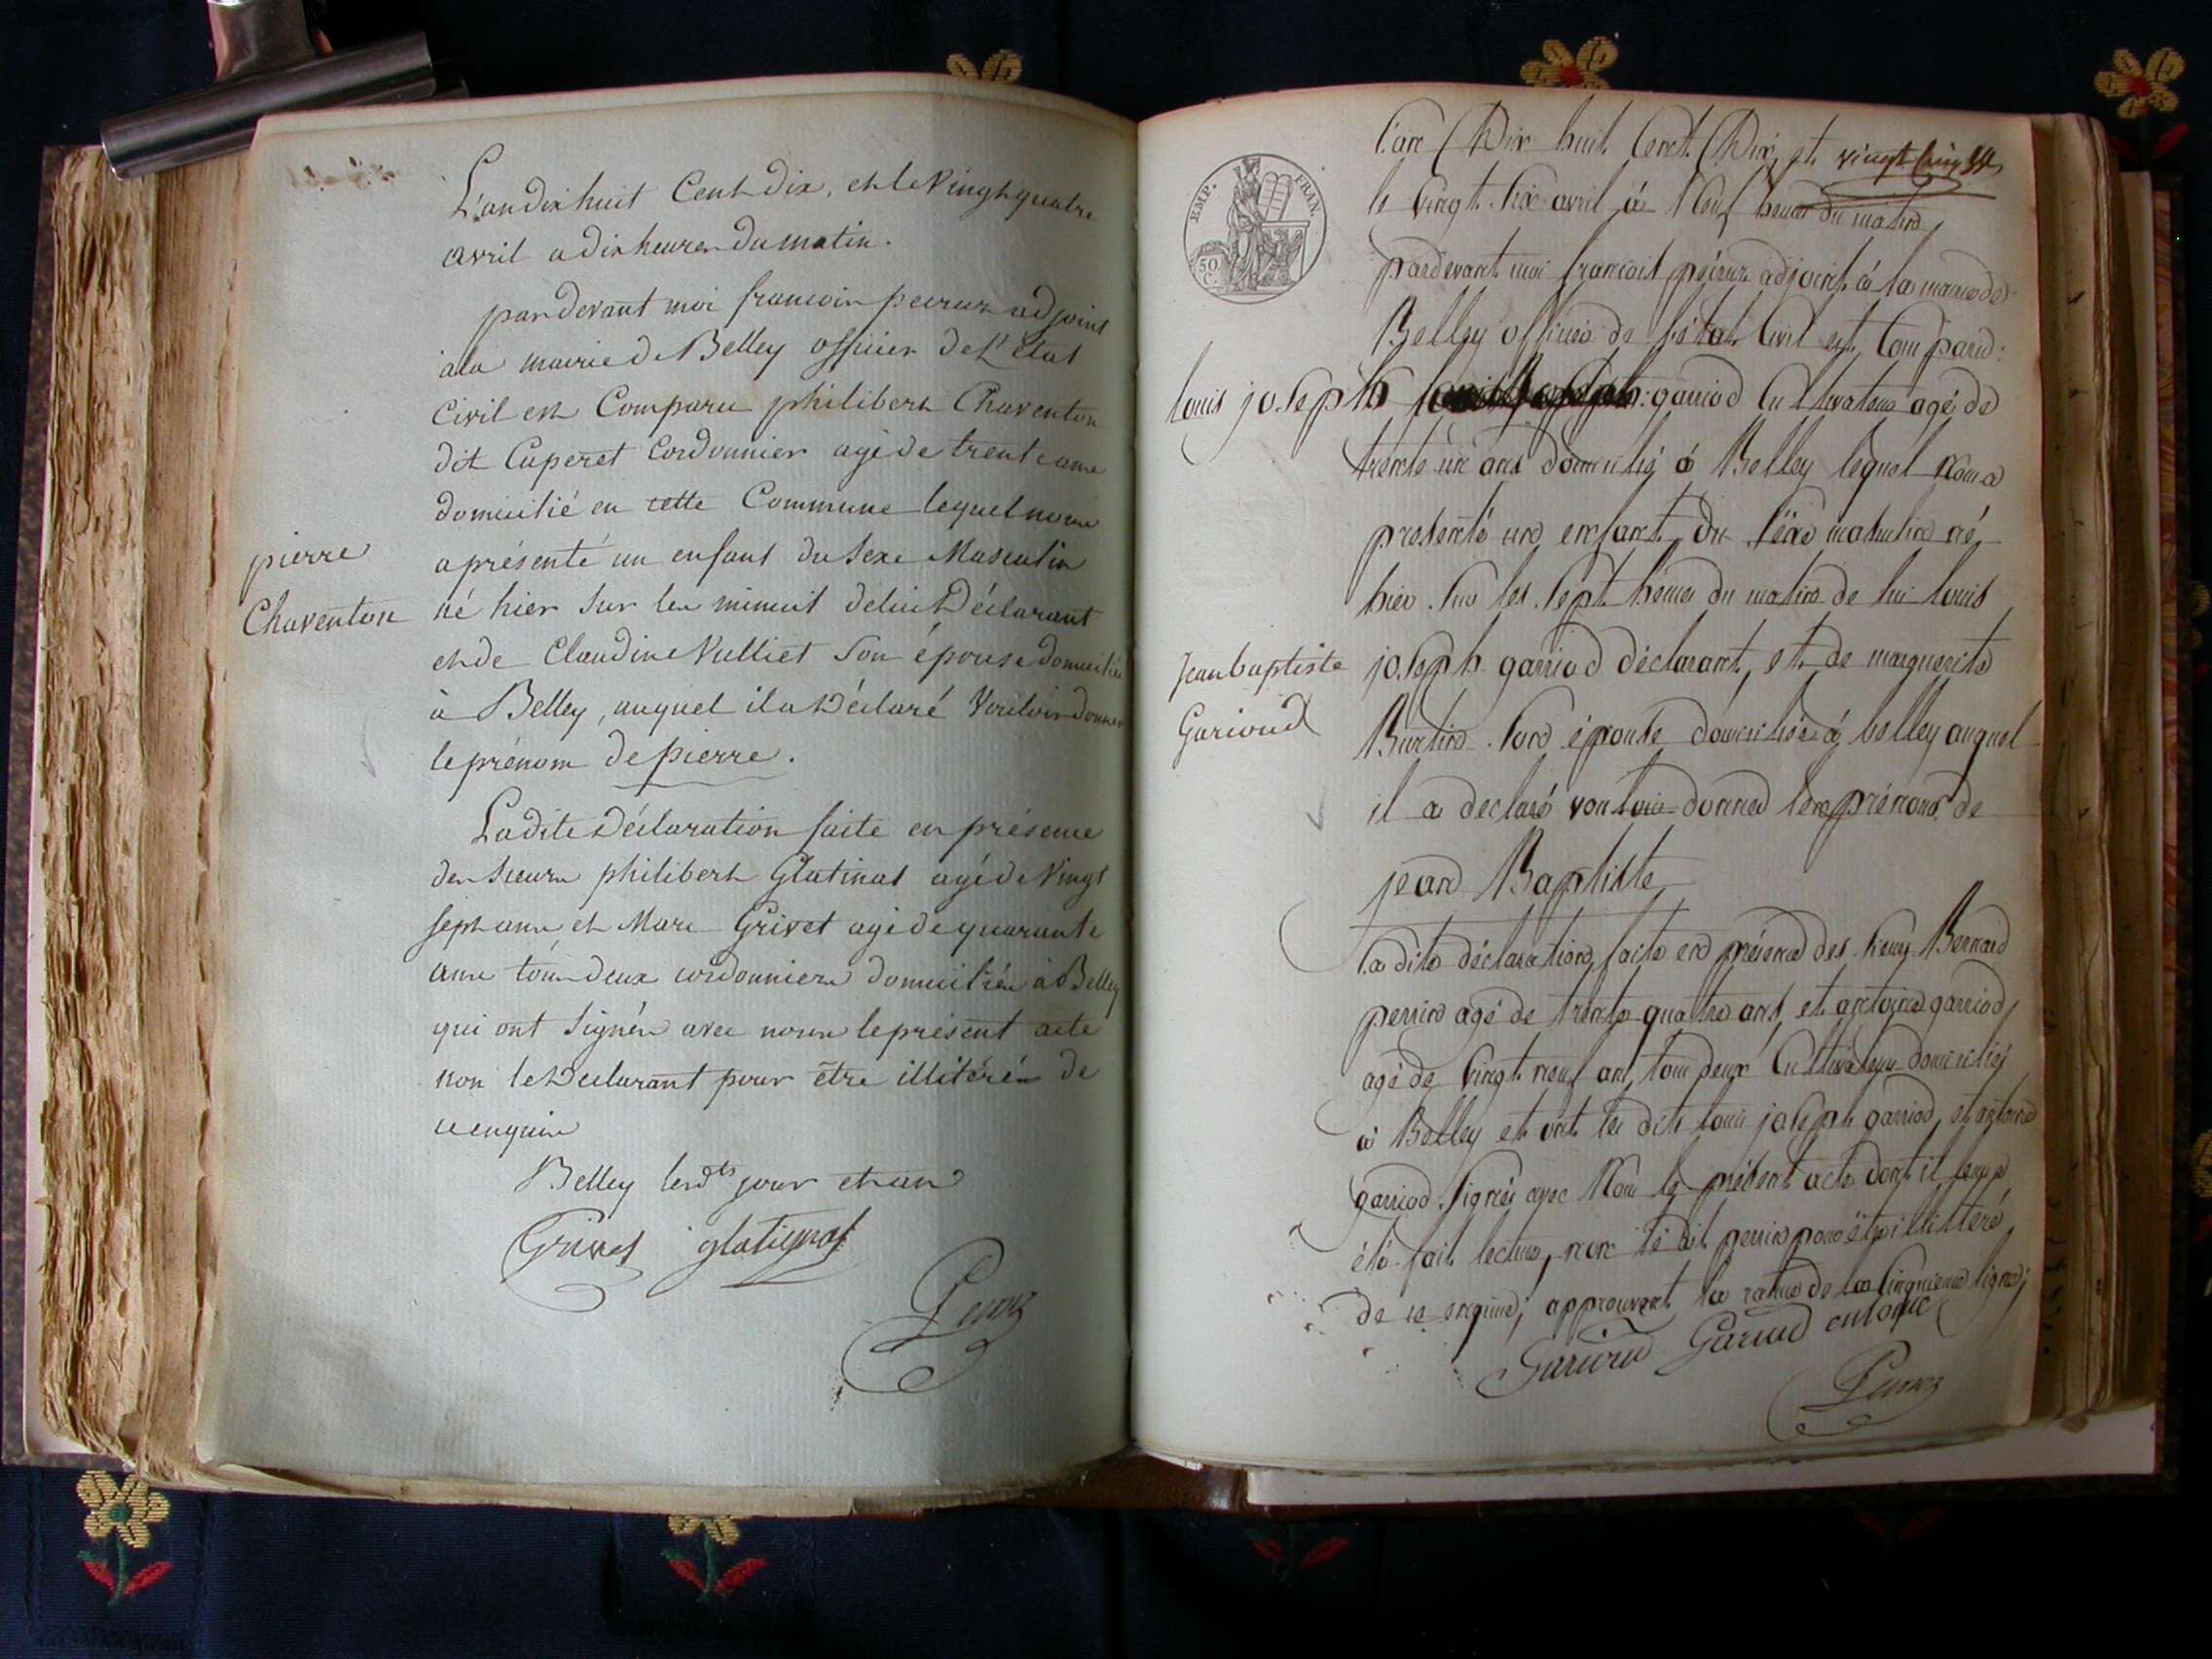 L'an dix huit Cent dix, et le Vingt quatre
avril a dix heures du matin.
par devant moi francois peyruz adjoint
à la mairie de Belley officier de L'état
Civil est Comparu philibert Chaventon
dit Cuperet Cordonnier agé de trente ans
domicilié en cette Commune lequel nous
a présenté un enfant du Sexe Masculin
pierre
Chaventon
né hier sur les minuit de lui Déclarant
et de Claudine Vulliet Son épouse domiciliée
à Belley, auquel il a Déclaré Vouloir donner
le prénom de pierre.
La dite Déclaration faite en présence
des Sieurs philibert Glatinat agé de Vingt
sept ans et Marc Grivet agé de quarante
ans tous deux cordonniers domiciliés à Belley
qui ont Signés avec nous le présent acte
non le Déclarant pour être illitérés de
ce enquis
Belley les dts jour et an
Grivet glatignat
EMP. FRAN.
50.
C.
l'an Dix huit Cent Dix, et
le vingt six avril à neuf heures du matin
pardevant moi francois peiruz adjoint à la mairie de
Belley officier de l'état Civil est Comparu:
louis joseph garriod Cultivateur agé de
trente un ans domicilié à Belley lequel nous a
presenté un enfant du sexe masculin né
hier sur les sept heures du matin de lui louis
Jean baptiste
Garioud
joseph garriod déclarant, et de marguerite
Burtin son épouse domiciliée à belley auquel
il a déclaré vouloir donner les prénoms de
jean Baptiste
la dite déclaration faite en présence des sieurs Bernard
perrin agé de trente quatre ans, et antoine garriod
agé de vingt neuf ans, tous deux Cultivateurs domiciliés
à Belley et ont les dits louis joseph garriod, et antoine
garriod signés avec Nous le présent acte dont il leur a
été fait lecture, non le dit perrin pour être illitéré
de ce enquis; approuvant la rature de la cinquieme ligne;
Gariod Gariod antoine